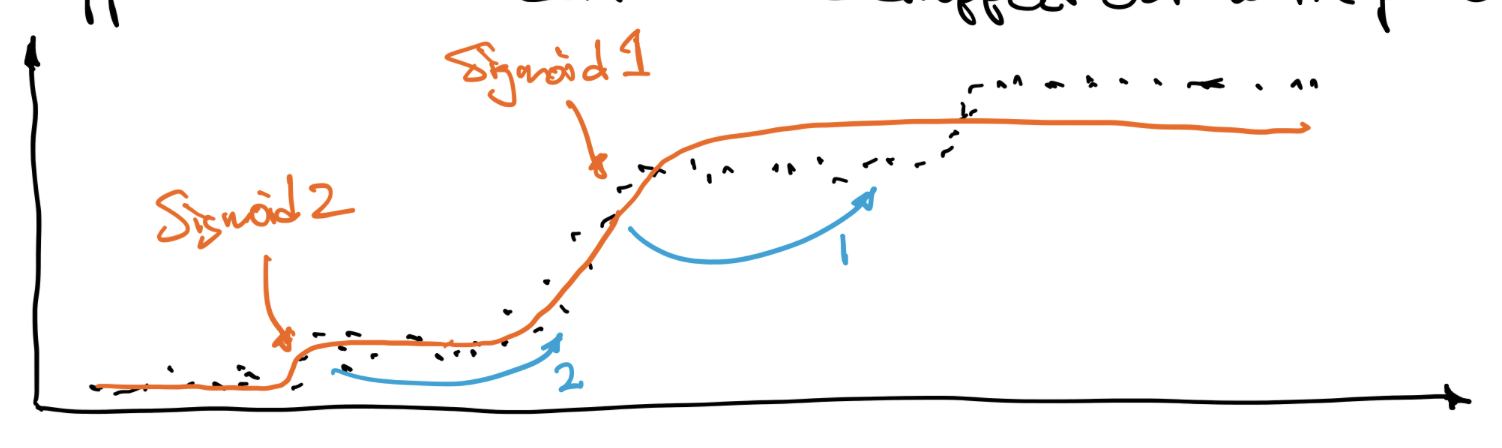 Sigmoid 1
Sigmoid 2
1
2